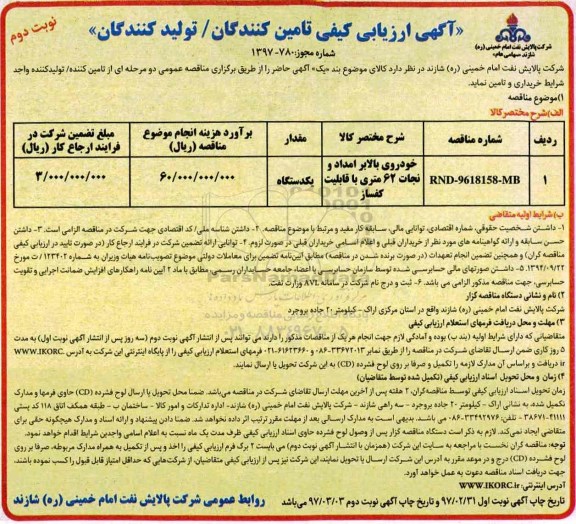 نوبت دوم
«آگهی ارزیابی کیفی تامین کنندگان/ تولید کنندگان»
شماره مجوز: ۷۸۰-۱۳۹۷
شرکت پالایش نفت امام خمینی (ره) شازند
(سهامی عام)
شرکت پالایش نفت امام خمینی (ره) شازند در نظر دارد کالای موضوع بند «یک» آگهی حاضر را از طریق برگزاری مناقصه عمومی دو مرحله ای از تامین کننده/ تولیدکننده واجد
شرایط خریداری و تامین نماید.
۱) موضوع مناقصه
الف) شرح مختصر کالا
ردیف شماره مناقصه شرح مختصر کالا مقدار برآورد هزینه انجام موضوع مناقصه (ریال) مبلغ تضمین شرکت در فرایند ارجاع کار (ریال)
۱ RND-9618158-MB خودروی بالابر امداد و نجات ۶۲ متری با قابلیت کفساز یکدستگاه ۶۰/۰۰۰/۰۰۰/۰۰۰ ۳/۰۰۰/۰۰۰/۰۰۰
ب) شرایط اولیه متقاضی
۱- داشتن شخصیت حقوقی، شماره اقتصادی، توانایی مالی، سابقه کار مفید و مرتبط با موضوع مناقصه. ۲- داشتن شناسه ملی/ کد اقتصادی جهت شرکت در مناقصه الزامی است. ۳- داشتن
حسن سابقه و ارائه گواهینامه های مورد نظر از خریداران قبلی و اعلام اسامی خریداران قبلی در صورت لزوم. ۴- توانایی ارائه تضمین شرکت در فرایند ارجاع کار (در صورت تایید در ارزیابی کیفی
مناقصه گران) و همچنین تضمین انجام تعهدات (در صورت برنده شدن در مناقصه) مطابق آیین‌نامه تضمین برای معاملات دولتی موضوع تصویب‌نامه هیات وزیران به شماره ۱۲۳۴۰۲/ت مورخ
۱۳۹۴/۰۹/۲۲. ۵- داشتن صورتهای مالی حسابرسی شده توسط سازمان حسابرسی یا اعضاء جامعه حسابداران رسمی، مطابق با ماد ۲ آیین نامه راهکارهای افزایش ضمانت اجرایی و تقویت
حسابرسی، جهت مناقصه مذکور الزامی می باشد. ۶- ثبت و درج نام شرکت در سامانه AVL وزارت نفت.
۲) نام و نشانی دستگاه مناقصه گزار
شرکت پالایش نفت امام خمینی (ره) شازند واقع در استان مرکزی اراک - کیلومتر ۲۰ جاده بروجرد
۳) مهلت و محل دریافت فرمهای استعلام ارزیابی کیفی
متقاضیانی که دارای شرایط اولیه (بند ب) بوده و آمادگی لازم جهت انجام هر یک از مناقصات مذکور را دارند می توانند پس از انتشار آگهی نوبت دوم (سه روز پس از انتشار آگهی نوبت اول) به مدت
۵ روز کاری ضمن ارسال تقاضای شرکت در مناقصه را از طریق نمابر ۳۳۶۷۲۰۱۳-۰۸۶ و ۶۱۶۲۳۶۶۰-۰۲۱ فرمهای استعلام ارزیابی کیفی را از پایگاه اینترنتی این شرکت به آدرس WWW.IKORC.
ir دریافت و براساس آن مدارک لازمه را تکمیل و صرفا بر روی لوح فشرده (CD) به این شرکت تحویل یا ارسال نمایند.
۴) زمان و محل تحویل اسناد ارزیابی کیفی (تکمیل شده توسط متقاضیان)
زمان تحویل اسناد ارزیابی کیفی توسط مناقصه‌گران، ۲ هفته پس از آخرین مهلت ارسال تقاضای شرکت در مناقصه می‌باشد. ضمنا محل تحویل یا ارسال لوح فشرده (CD) حاوی فرمها و مدارک
تکمیل شده، به نشانی اراک - کیلومتر ۲۰ جاده بروجرد - سه راهی شازند - شرکت پالایش نفت امام خمینی (ره) شازند- اداره تدارکات و امور کالا - ساختمان ب - طبقه همکف اتاق ۱۱۸ کد پستی
۳۸۶۷۱-۴۱۱۱۱ - تلفن: ۳۳۴۹۲۷۷۶-۰۸۶ می باشد. بدیهی است به مدارک ارسالی بعد از مهلت مقرر ترتیب اثر داده نخواهد شد. ضمنا دادن پیشنهاد و ارائه اسناد و مدارک هیچگونه حقی برای
متقاضی ایجاد نمی‌کند. لازم به ذکر است دستگاه مناقصه گزار پس از وصول لوح فشرده حاوی اسناد ارزیابی کیفی ظرف مدت یک ماه نسبت به اعلام اسامی واجدین شرایط اقدام خواهد نمود.
توجه: مناقصه گران نخست با مراجعه به سایت این شرکت (همزمان با انتشار آگهی نوبت دوم) می بایست ۲ برگ فرم ارزیابی کیفی را اخذ و پس از تکمیل به همراه مدارک مربوطه، صرفا بر روی
لوح فشرده (CD) درج و در موعد مقرر به آدرس این شرکت ارسال یا تحویل نمایند؛ این شرکت نیز پس از ارزیابی کیفی متقاضیان، از شرکت‌هایی که حداقل امتیاز قابل قبول را کسب نموده باشند،
جهت دریافت اسناد مناقصه دعوت به عمل خواهد آورد.
آدرس اینترنتی: WWW.IKORC.ir
تاریخ چاپ آگهی نوبت اول ۹۷/۰۲/۳۱ و تاریخ چاپ آگهی نوبت دوم ۹۷/۰۳/۰۳ می‌باشد
روابط عمومی شرکت پالایش نفت امام خمینی (ره) شازند